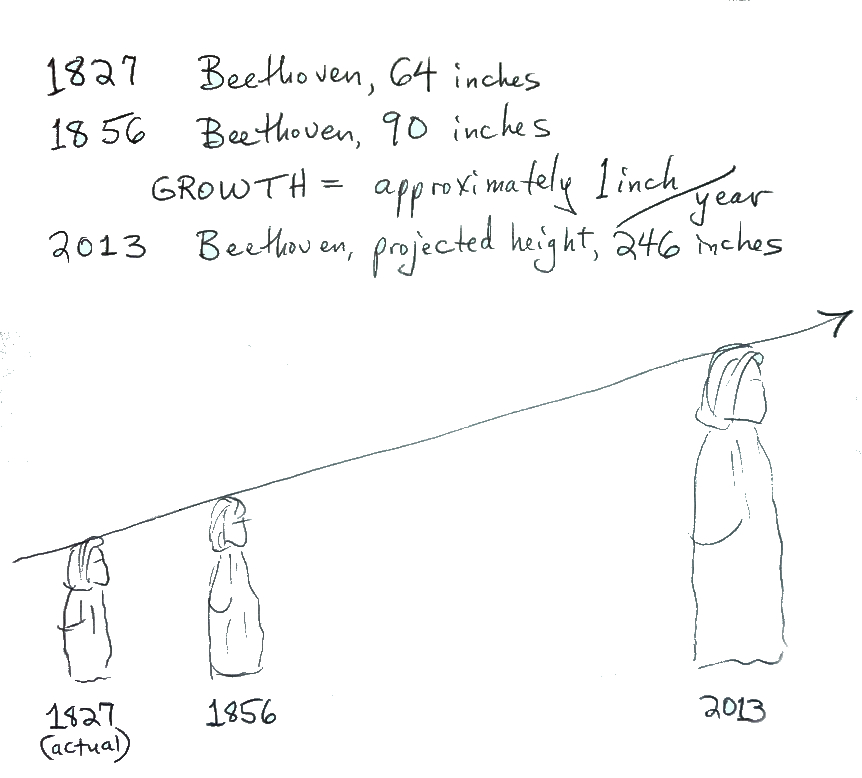 1827 Beethoven, 64 inches
1856 Beethoven, 90 inches
GROWTH = approximately 1 inch/year
2013 Beethoven, projected height, 246 inches
1827 1856 2013
(actual)